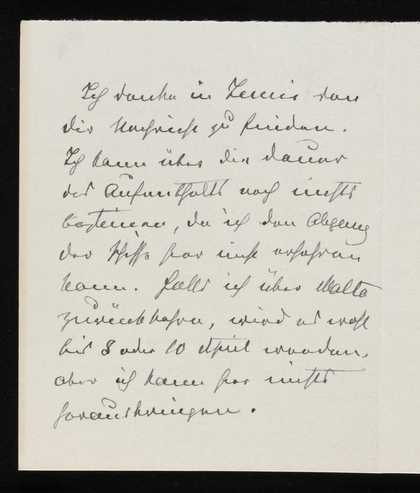 Ich denke in Tunis von
dir Nachricht zu finden.
Ich kann über die Dauer
des Aufenthalts noch nichts
bestimmen, da ich den Abgang
der Schiffe hier nicht erfahren
kann. Falls ich über Malta
zurückkehre, wird es wohl
bis 8 oder 10 April werden,
aber ich kann hier nichts
herausbringen.